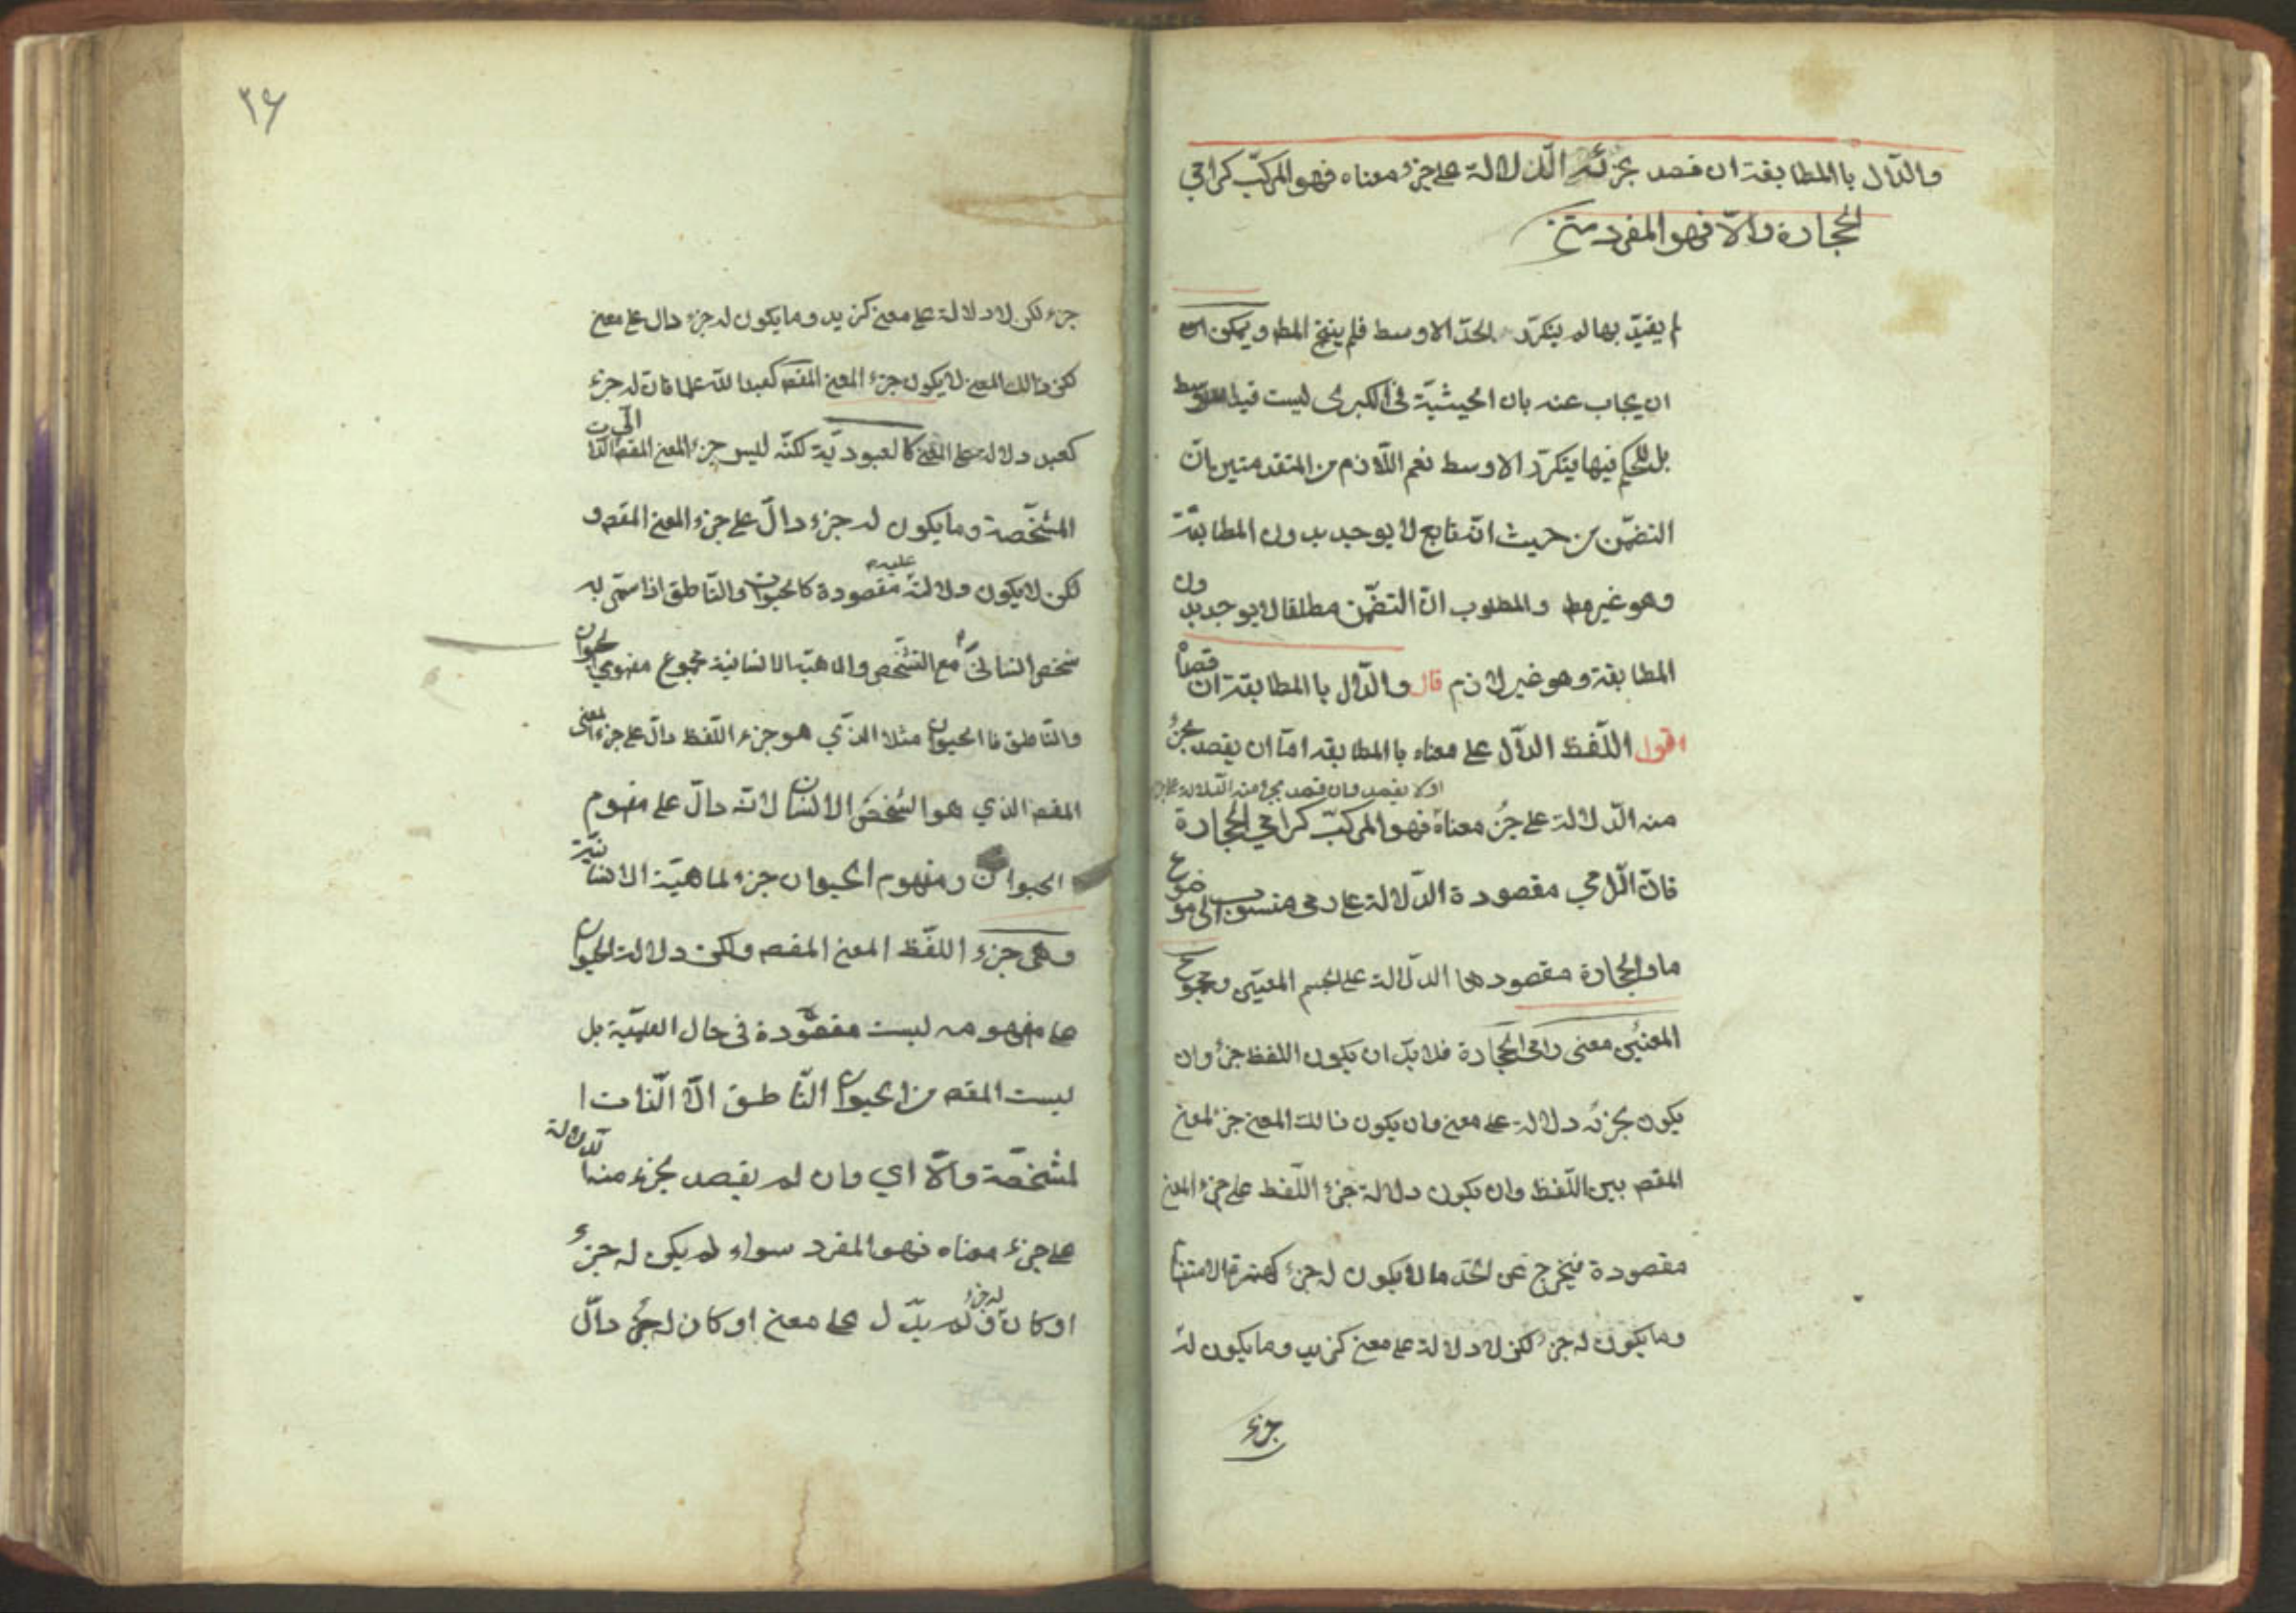 والدّال باالمطابقة ان قصد بجزئه الدّلالة على جزء معناه فهو المركّب كرامي
الحجارة والّا فهو المفرد متن
لم يقيّد بها لم يتكرّر الحدّ الاوسط فلم ينتج المط ويمكن
ان يجاب عنه بان الحيثيّة في الكبرى ليست قيدا للاوسط
بل للحكم فيها يتكرّر الاوسط نعم اللّازم من المتقدمتين بانّ
التضمّن من حيث انّه تابع لا يوجد بدون المطابقة
وهو غير مط والمطلوب انّ التضمّن مطلقا لا يوجد بدون
المطابقة وهو غير لازم قال والدّال باالمطابقة ان قصد
اقول اللّفظ الدّال على معناه باالمطابقه امّا ان يقصد بجزء
او لا يقصد فان قصد بجزء منه الدّلالة على جزء
منه الدّلالة على جزء معناه فهو المركّب كرامي الحجارة
فانّ الرّامي مقصودة الدّلالة على رمى منسوب الى موضوع
ما والحجارة مقصودها الدّلالة على الجسم المعيّن ومجموع
المعنيين معنى رامى الحجارة فلا بدّ ان يكون اللفظ جزء وان
يكون بجزئه دلالة على معنى وان يكون ذالك المعنى جزء لمعنى
المقصم بين اللّفظ وان يكون دلالة جزء اللّفظ على جزء المعنى
مقصودة فيخرج عن الحدّ ما لا يكون له جزء كهمزة الاستفهام
وما يكون له جزء لكن لا دلالة على معنى كزيد وما يكون له
جزء
٢٦
جزء لكن لا دلالة على معنى كزيد وما يكون له جزء دال على معنى
لكن ذالك المعنى لا يكون جزء المعنى المقصم كعبدا للّه علما فانّ له جزء
كعبد دلاله على المعنى كالعبوديّة لكنّه ليس جزء المعنى المقصم الذّات
المشخّصة وما يكون له جزء دالّ على جزء المعنى المقصم و
لكن لا يكون دلالته عليه مقصودة كالحيوان والنّاطق اذا سمّى به
شخص انسانيّ مع التشّخص والماهيّة الانسانية مجموع مفهومي الحيوان
والنّاطق فا الحيوان مثلا الذّي هو جزء اللّفظ دالّ على جزء المعنى
المقصم الذي هو الشّخص الانسان لانّه دالّ على مفهوم
الحيوان ومفهوم الحيوان جزء لماهيّة الانسانيّة
وهى جزء اللّفظ المعنى المقصم ولكن دلالة الحيوان
على مفهومه ليست مقصّودة في حال العلميّة بل
ليست المقصم من الحيوان النّاطق الّا الّذات ا
لمشخّصة والّا اي وان لم يقصد بجزء منه الدّلالة
على جزء معناه فهو المفرد سواء لم يكن له جزء
او كان له جزء ولم يدّل على معنى او كان له جزء دالّ